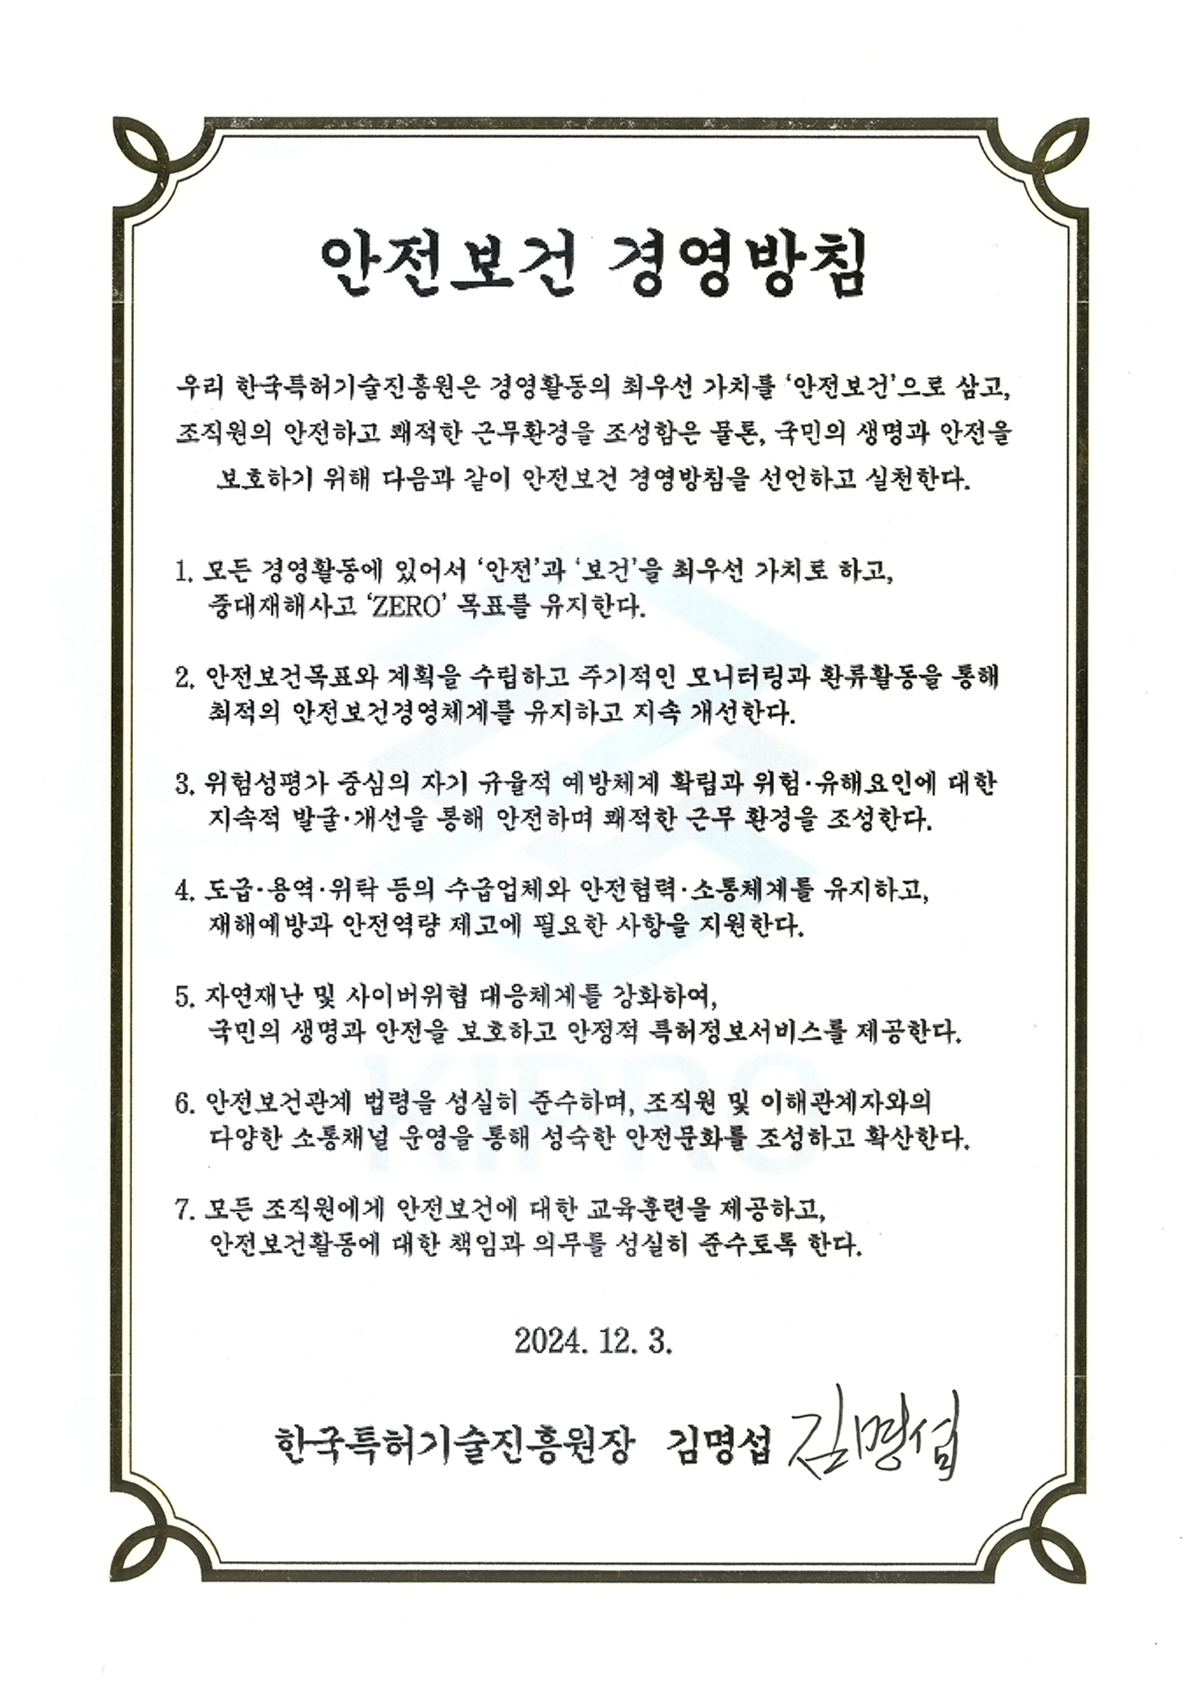 안전보건 경영방침
우리 한국특허기술진흥원은 경영활동의 최우선 가치를 ‘안전보건’으로 삼고,
조직원의 안전하고 쾌적한 근무환경을 조성함은 물론, 국민의 생명과 안전을
보호하기 위해 다음과 같이 안전보건 경영방침을 선언하고 실천한다.
1. 모든 경영활동에 있어서 ‘안전’과 ‘보건’을 최우선 가치로 하고,
중대재해사고 ‘ZERO’ 목표를 유지한다.
2. 안전보건목표와 계획을 수립하고 주기적인 모니터링과 환류활동을 통해
최적의 안전보건경영체계를 유지하고 지속 개선한다.
3. 위험성평가 중심의 자기 규율적 예방체계 확립과 위험·유해요인에 대한
지속적 발굴·개선을 통해 안전하며 쾌적한 근무 환경을 조성한다.
4. 도급·용역·위탁 등의 수급업체와 안전협력·소통체계를 유지하고,
재해예방과 안전역량 제고에 필요한 사항을 지원한다.
5. 자연재난 및 사이버위협 대응체계를 강화하여,
국민의 생명과 안전을 보호하고 안정적 특허정보서비스를 제공한다.
KIPRO
6. 안전보건관계 법령을 성실히 준수하며, 조직원 및 이해관계자와의
다양한 소통채널 운영을 통해 성숙한 안전문화를 조성하고 확산한다.
7. 모든 조직원에게 안전보건에 대한 교육훈련을 제공하고,
안전보건활동에 대한 책임과 의무를 성실히 준수토록 한다.
2024. 12. 3.
한국특허기술진흥원장 김명섭 김명섭